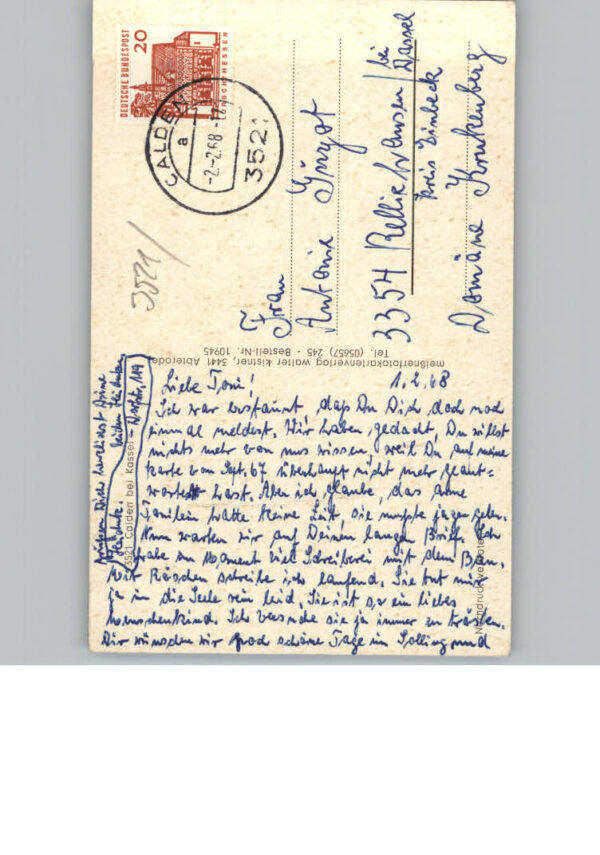 DEUTSCHE BUNDESPOST
20
LORSCH/HESSEN
CALDEN
a
-2.-2.68-17
3521
3521/
Frau
Antonie
3354 Relliehausen / bei Dassel
Kreis Einbeck
Domäne
meißnerfotokartenverlag walter kistner, 3441 Abterode
Tel. (05657) 245 - Bestell-Nr. 10945
3521 Calden bei Kassel
Liebe Toni! 1.2.68
Ich war erstaunt, daß Du Dich doch noch
einmal meldest. Wir haben gedacht, Du willst
nichts mehr von uns wissen, weil Du auf meine
Karte vom Sept. 67 überhaupt nicht mehr geant=
wortet hast. Aber ich glaube, das arme
Tonilein hatte keine Zeit, sie mußte jagen gehen.
Nun warten wir auf Deinen langen Brief. Ich
habe im Moment viel Schreiberei mit dem
Mit Röschen schreibe ich laufend. Sie tut mir
ja in die Seele rein leid. Sie ist so ein liebes
Menschenkind. Ich versuche sie ja immer zu trösten.
Dir wünschen wir noch schöne Tage im Solling und
grüßen Dich herzlichst Deine
beiden